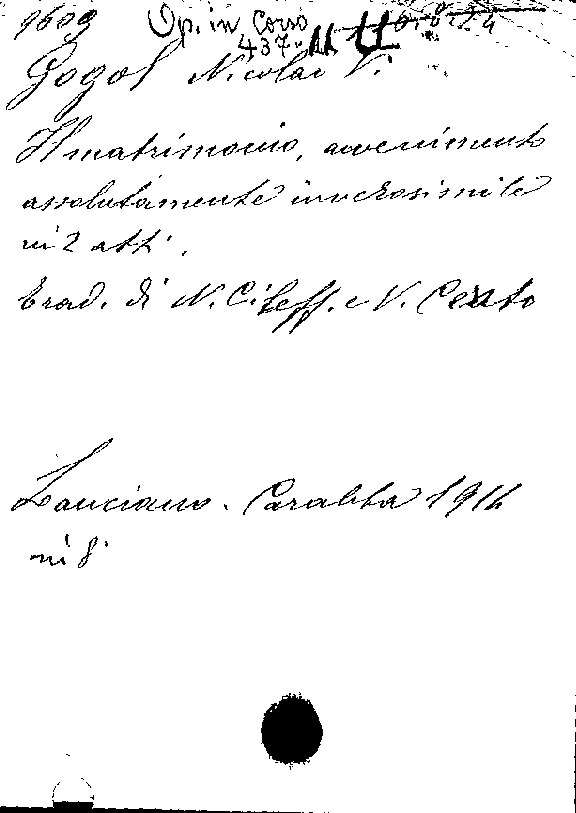 9609 Op. in Corso
437.
Gogol Nicolai V.
Il matrimonio, avvenimento
assolutamente inverosimile
in 2 atti.
Trad. di N. Cileff. e V. Cento
Lanciano. Carabba 1916
in 8°